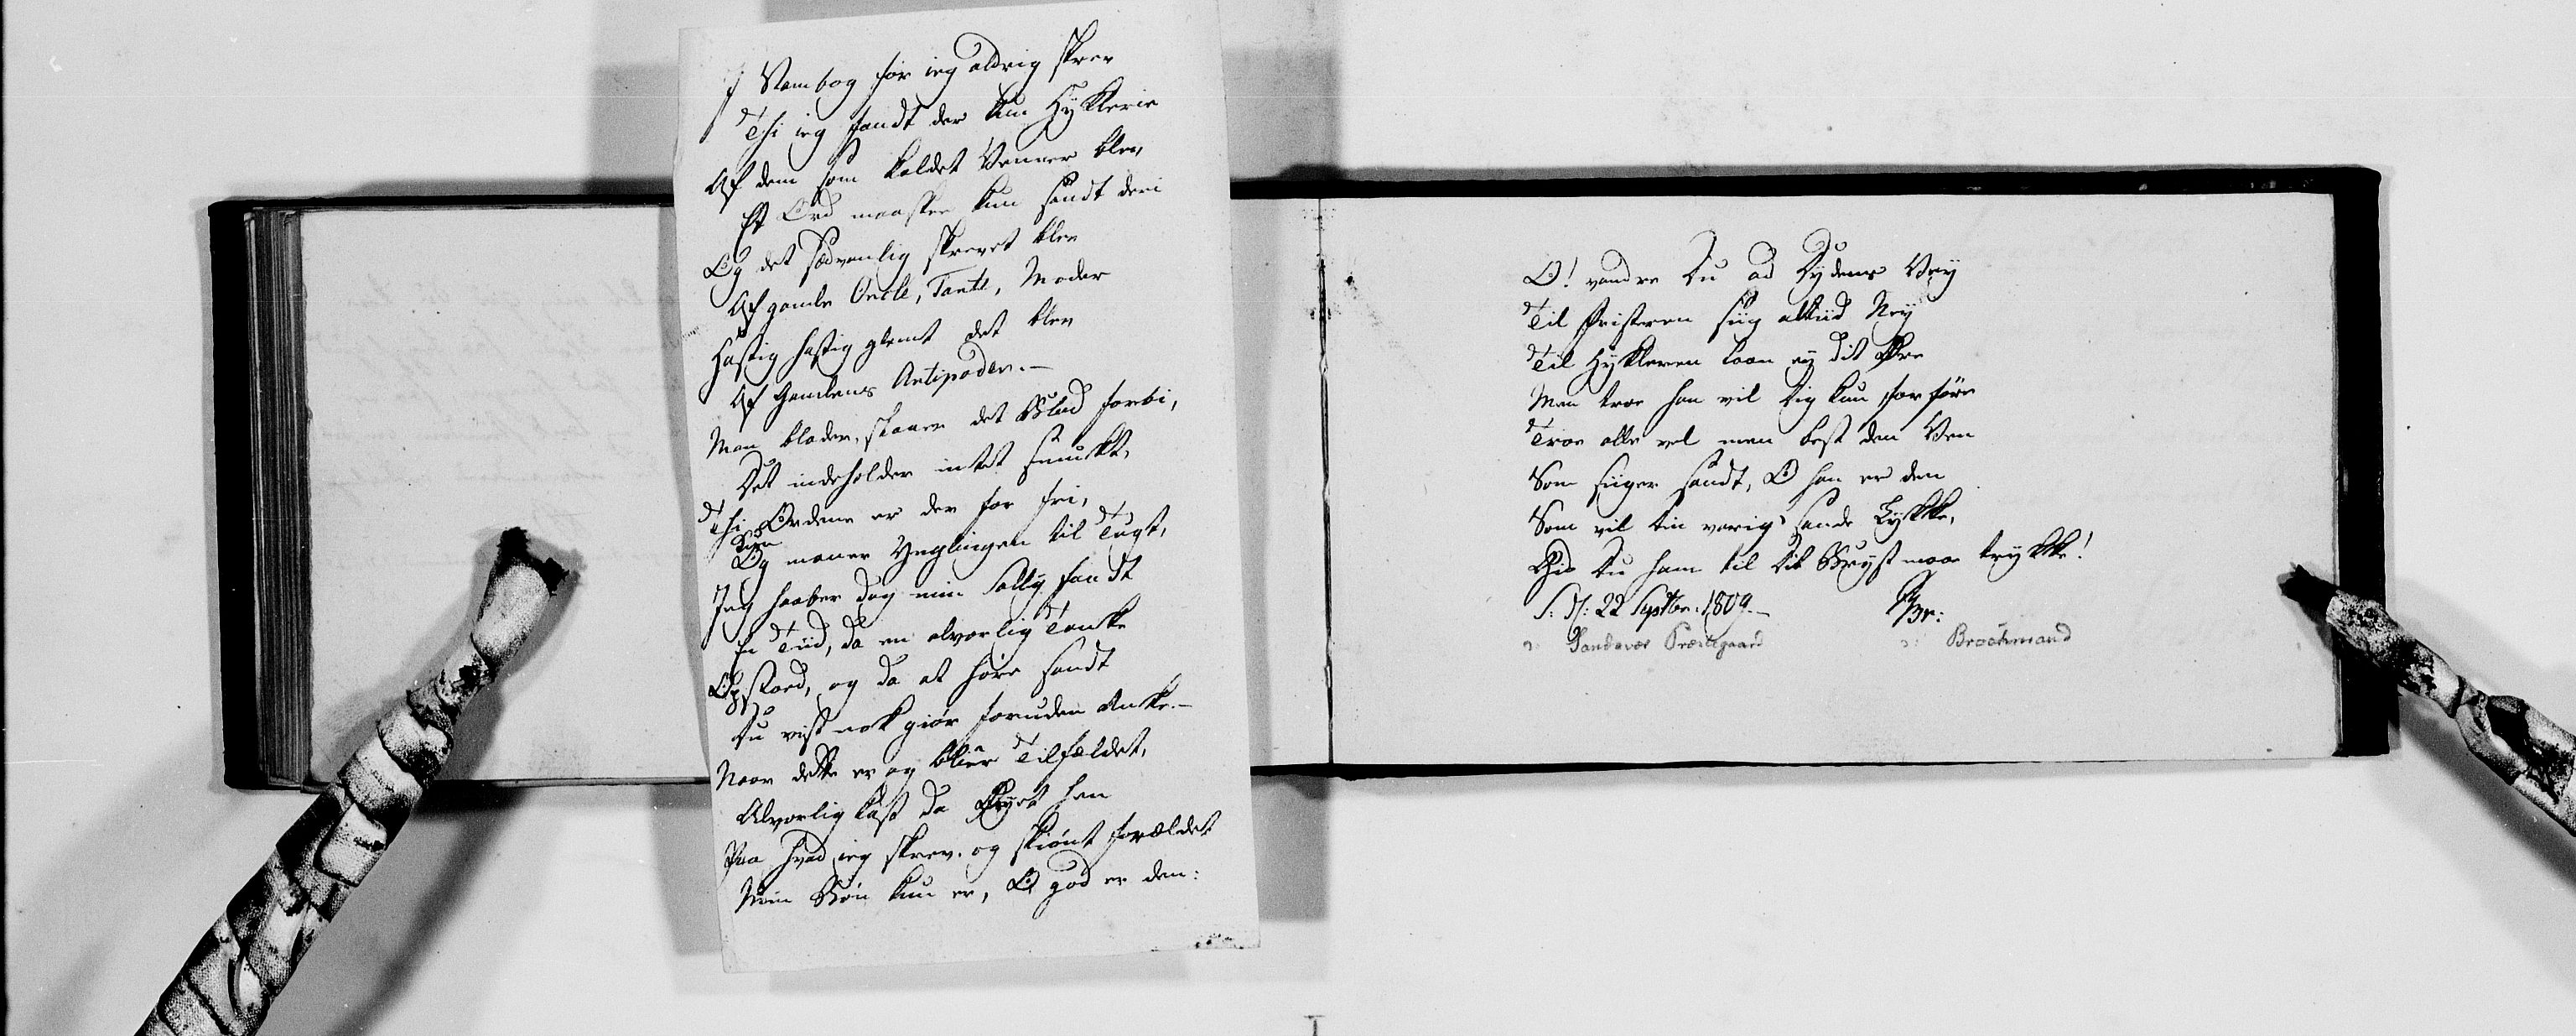 I Stambog før ieg aldrig skrev
Thi ieg fandt der kun Hyklerie
Af dem som kaldet Venner blev,
Et Ord maaskee kun sandt deri
Og det sædvanlig skrevet blev
Af gamle Oncle, Tante, Moder
Hastig hastig glemt det blev
Af Gamlens Antipoder.—
Man blader, skaaner det Blad forbi,
Det indeholder intet smukt,
Thi Ordene er der for fri,
Og maner Ynglingen til Tugt,
Jeg haaber dog min Sally fandt
En Tiid, da en alvorlig Tanke
Opstoed, og da at høre sandt
Du vist nok giør foruden Anke.—
Naar dette er og blier Tilfældet,
Alvorlig kast da Øyet hen
Paa hvad ieg skrev. og skiønt forældet
Min Bøn kun er, O god er den:
O! vandre Du ad Dydens Vey
Til Fristeren siig altiid Ney
Til Hykleren laan ey dit Øre
Men troe han vil dig kun forføre
Troe alle vel men best den Ven
Som siiger sandt, O han er den
Som vil din varig' sande Lykke,
Gid Du ham til dit Bryst maae trykke!
S: P: 22 Septbr. 1809.—
Br:
ɔ: Sandavær Præstegaard
ɔ: Brochmand